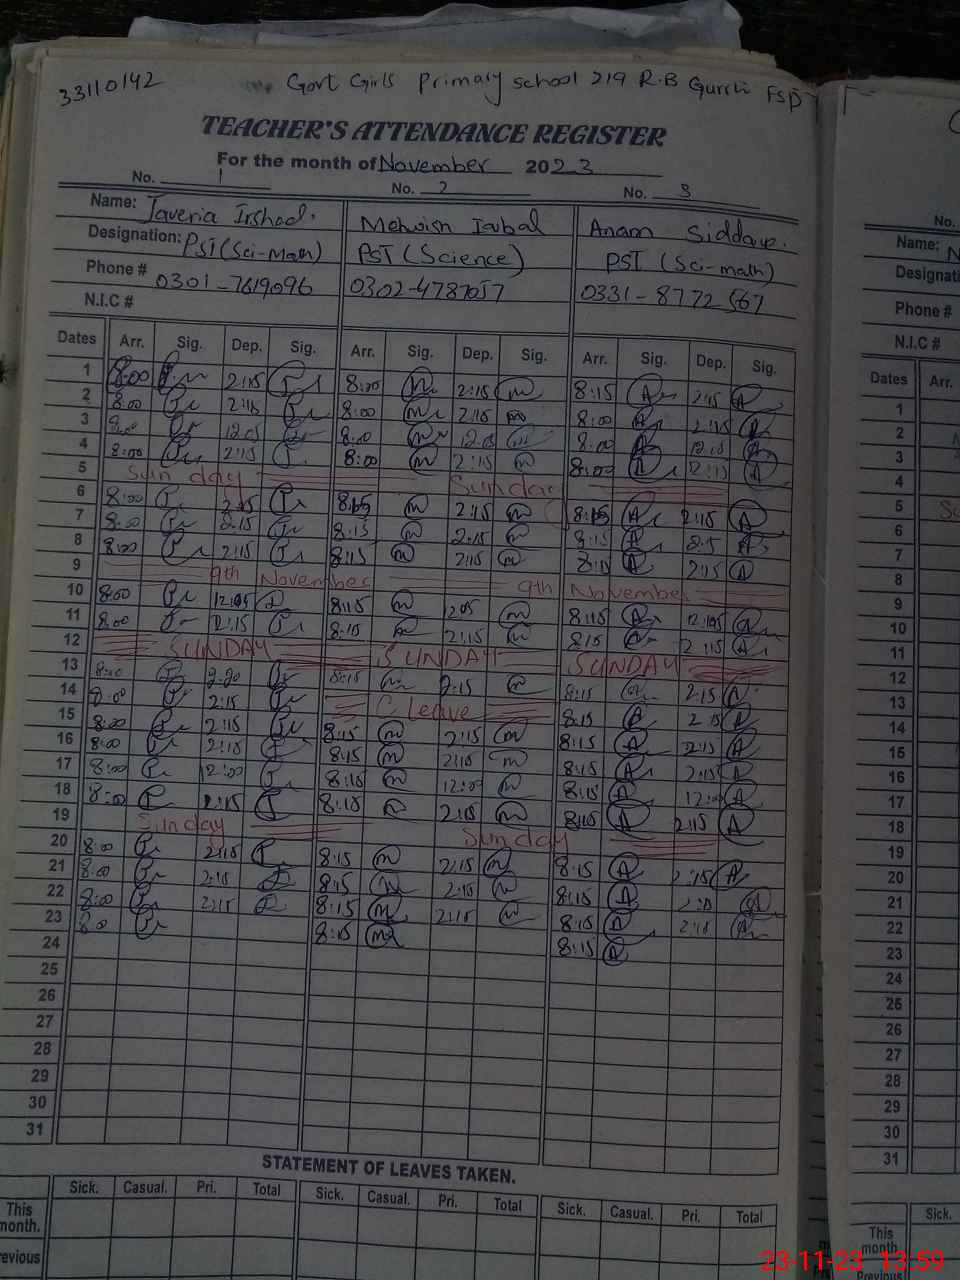 33110142
Govt Girls Primary school 219 R.B Gurrti FSD
TEACHER'S ATTENDANCE REGISTER
For the month of November 2023
No. 1 No. 2 No. 3
Name: Javeria Irshad. Mehvish Iqbal Anam Siddaqe.
Designation: PST (Sci-Math) PST (Science) PST (Sci-math)
Phone # 0301-7619096 0302-4787057 0331-8772567
N.I.C #
Dates Arr. Sig. Dep. Sig. Arr. Sig. Dep. Sig. Arr. Sig. Dep. Sig.
1 8:00 2:15 8:00 2:15 8:15 2:15
2 8:00 2:15 8:00 2:15 8:00 2:15
3 8:00 12:05 8:00 12:05 8:00
4 8:00 2:15 8:00 2:15 8:00
5 Sunday Sunday
6 8:00 2:15 8:15 2:15 8:15 2:15
7 8:00 2:15 8:15 2:15 8:15
8 8:00 2:15 8:15 2:15 2:15
9 9th November 9th November
10 8:00 12:05 8:15 12:05 8:15 12:05
11 8:00 2:15 8:15 2:15 8:15 2:15
12 SUNDAY SUNDAY SUNDAY
13 8:00 2:20 8:15 2:15 8:15 2:15
14 8:00 2:15 C Leave 8:15 2:15
15 8:00 2:15 8:15 2:15 8:15 2:15
16 8:00 2:15 8:15 2:15 8:15 2:15
17 8:00 12:00 8:15 12:00 8:15 12:00
18 8:00 2:15 8:15 2:15 8:15 2:15
19 Sunday Sunday
20 8:00 2:15 8:15 2:15 8:15 2:15
21 8:00 2:15 8:15 2:15 8:15
22 8:00 2:15 8:15 2:15 8:15 2:15
23 8:00 8:15 8:15
24
25
26
27
28
29
30
31
STATEMENT OF LEAVES TAKEN.
Sick. Casual. Pri. Total Sick. Casual. Pri. Total Sick. Casual. Pri. Total
This month.
No.
Name:
Phone #
N.I.C #
Dates Arr.
1
2
3
4
5
6
7
8
9
10
11
12
13
14
15
16
17
18
19
20
21
22
23
24
25
26
27
28
29
30
31
Sick.
This month
23-11-23 13:59